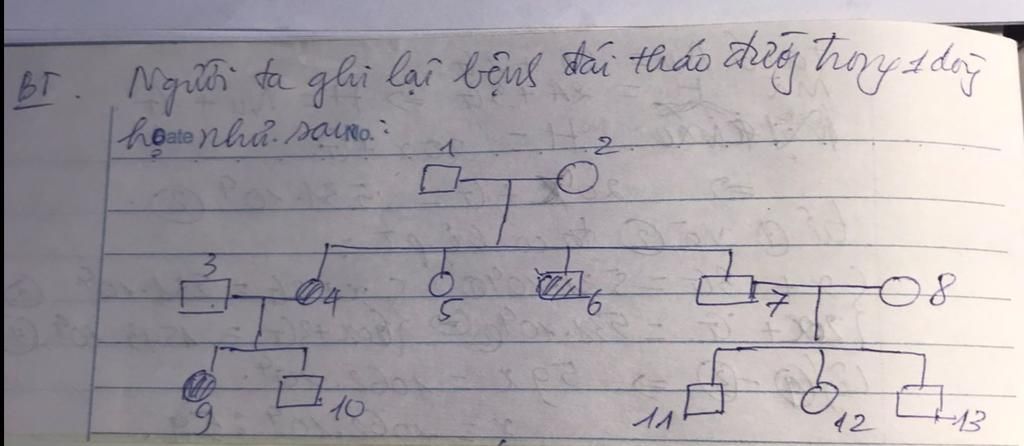 BT. Người ta ghi lại bệnh đái tháo đường trong 1 dòng
họ như sau:
1 2
3 4 5 6 7 8
9 10 11 12 13